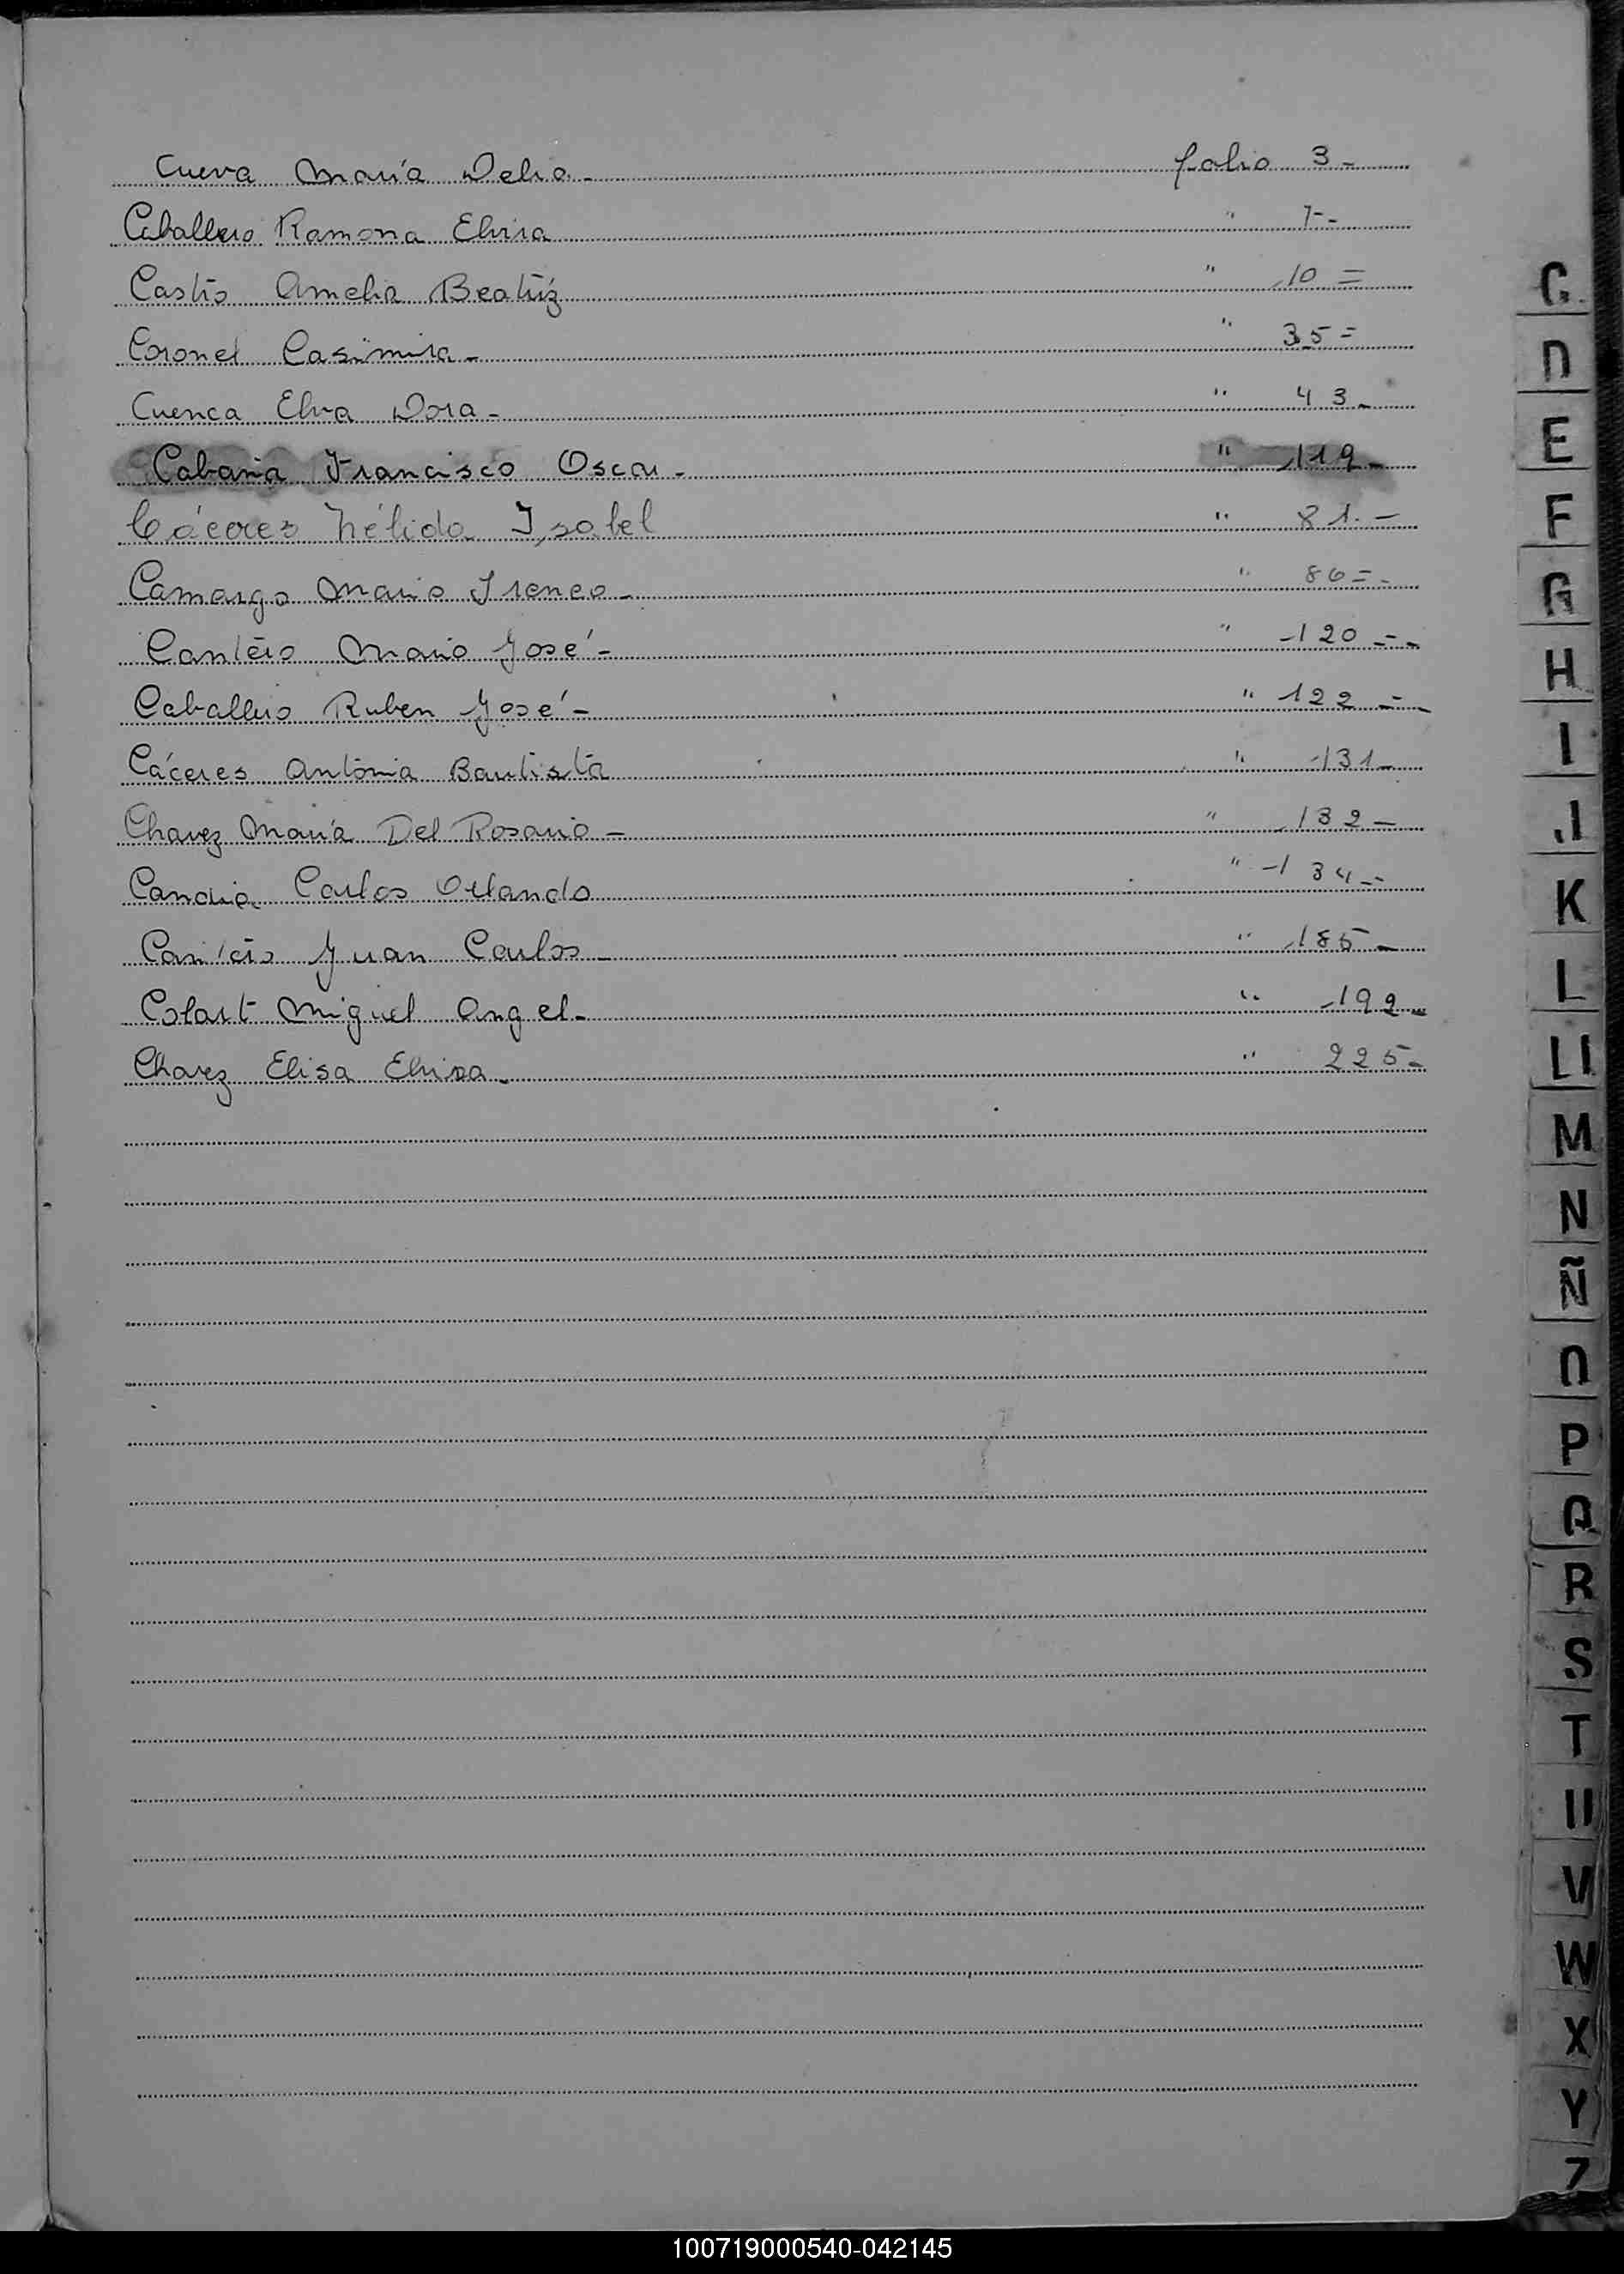 Cueva María Delia - folio 3 -
Caballero Ramona Elvira " 7 --
Castro Amelia Beatriz " 10 =
Coronel Casimira - " 35 =
Cuenca Elva Dora - " 43 -
Cabaña Francisco Oscar - " 119 -
Cáceres Nélida Isabel " 81. -
Camargo Mario Ireneo - " 86 = -
Cantero Mario José - " -120 = -
Caballero Ruben José - " 122 = -
Cáceres Antonia Bautista " 131 -
Chavez María Del Rosario - " 132 -
Candia Carlos Orlando " -134 --
Cantero Juan Carlos - " 185 -
Colart Miguel Angel - " 192 -
Chavez Elisa Elvira - " 225 -
C
D
E
F
G
H
I
J
K
L
Ll
M
N
Ñ
O
P
Q
R
S
T
U
V
W
X
Y
Z
100719000540-042145